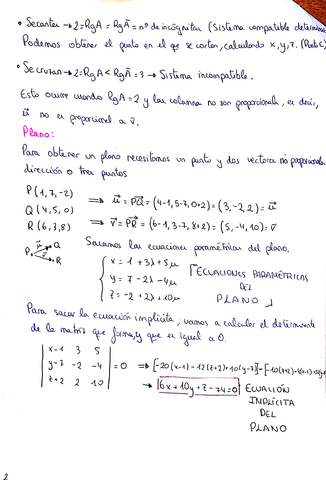 • Secantes → 2 = RgA = RgĀ = nº de incógnitas (Sistema compatible determinado
Podemos obtener el punto en el qe se cortan, calculando x, y, z.
• Se cruzan → 2 = RgA < RgĀ = 3 → Sistema incompatible.
Esto ocurre cuando RgA = 2 y las columnas no son proporcionales, es decir,
u⃗ no es proporcional a v⃗.
Plano:
Para obtener un plano necesitamos un punto y dos vectores no proporcionales
dirección o tres puntos
P(1,7,-2)
Q(4,5,0) ⟹ u⃗ = PQ⃗ = (4-1, 5-7, 0+2) = (3,-2,2) = u⃗
R(6,3,8) ⟹ v⃗ = PR⃗ = (6-1, 3-7, 8+2) = (5,-4,10) = v⃗
P u⃗ Q
v⃗ R
Sacamos las ecuaciones paramétricas del plano.
x = 1 + 3λ + 5μ
y = 7 - 2λ - 4μ
z = -2 + 2λ + 10μ
ECUACIONES PARAMÉTRICAS
DEL
PLANO
Para sacar la ecuación implícita, vamos a calcular el determinante
de la matriz que forman y que es igual a 0.
|x-1 3 5|
|y-7 -2 -4| = 0 ⟹ [-20(x-1) - 12(z+2) + 10(y-7)] - [-10(z+2)
|z+2 2 10|
→ 6x + 10y + z - 74 = 0 ECUACIÓN
IMPLÍCITA
DEL
PLANO
2